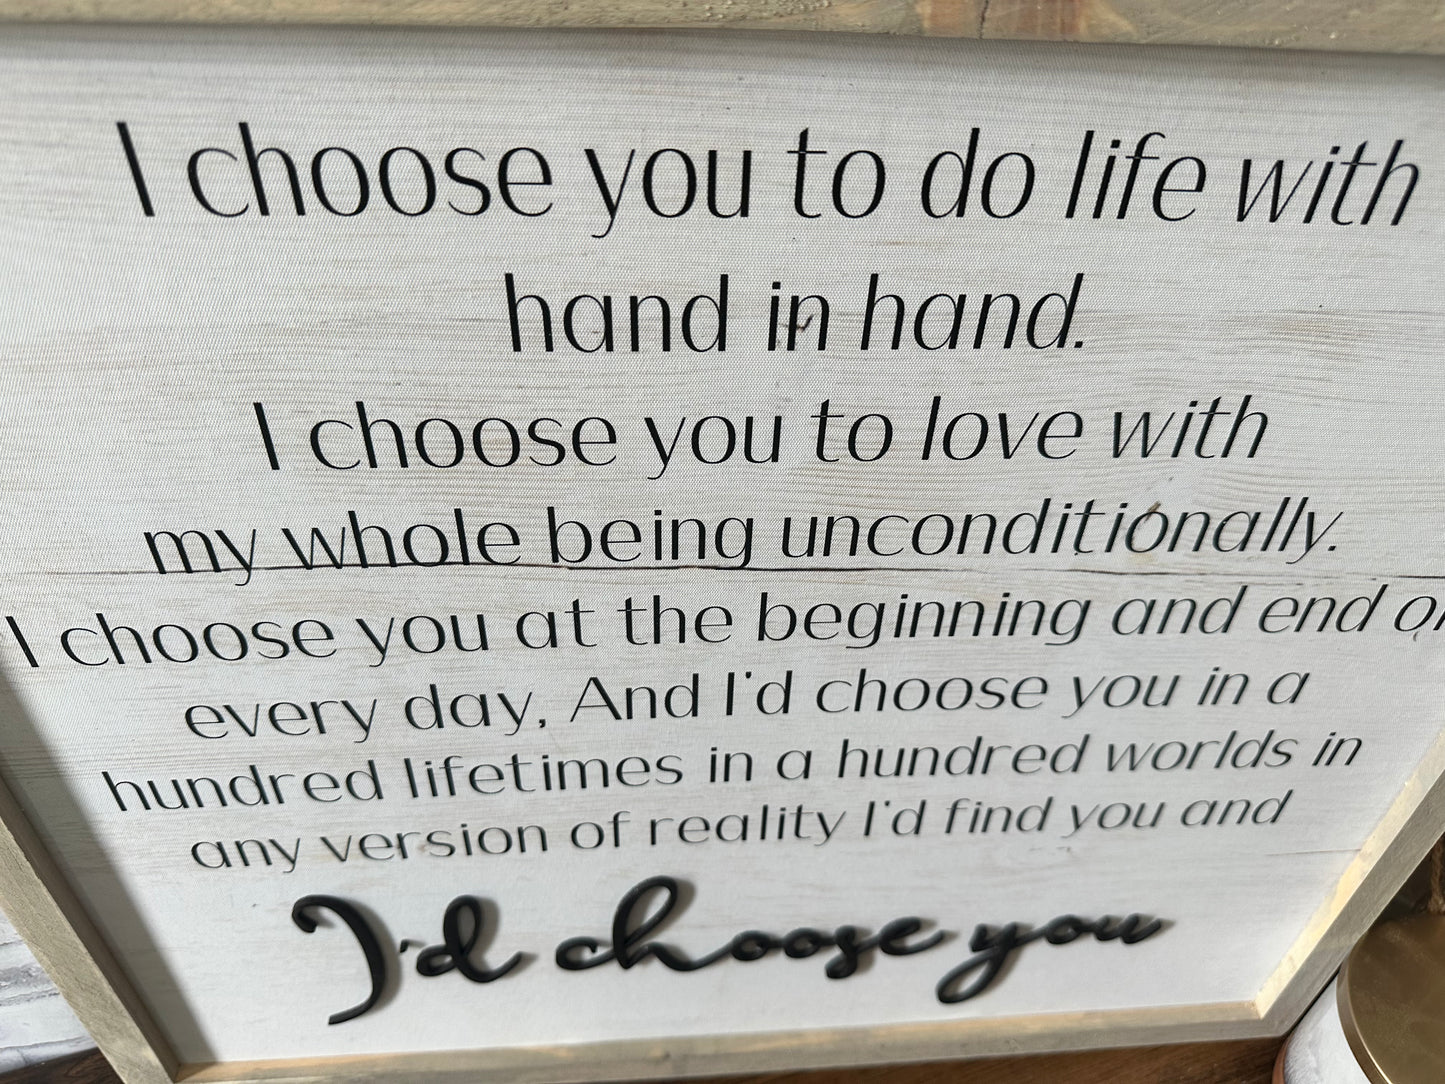 I choose you to do life with
hand in hand.
I choose you to love with
my whole being unconditionally.
I choose you at the beginning and end
every day, And I'd choose you in a
hundred lifetimes in a hundred worlds in
any version of reality I'd find you and
I'd choose you